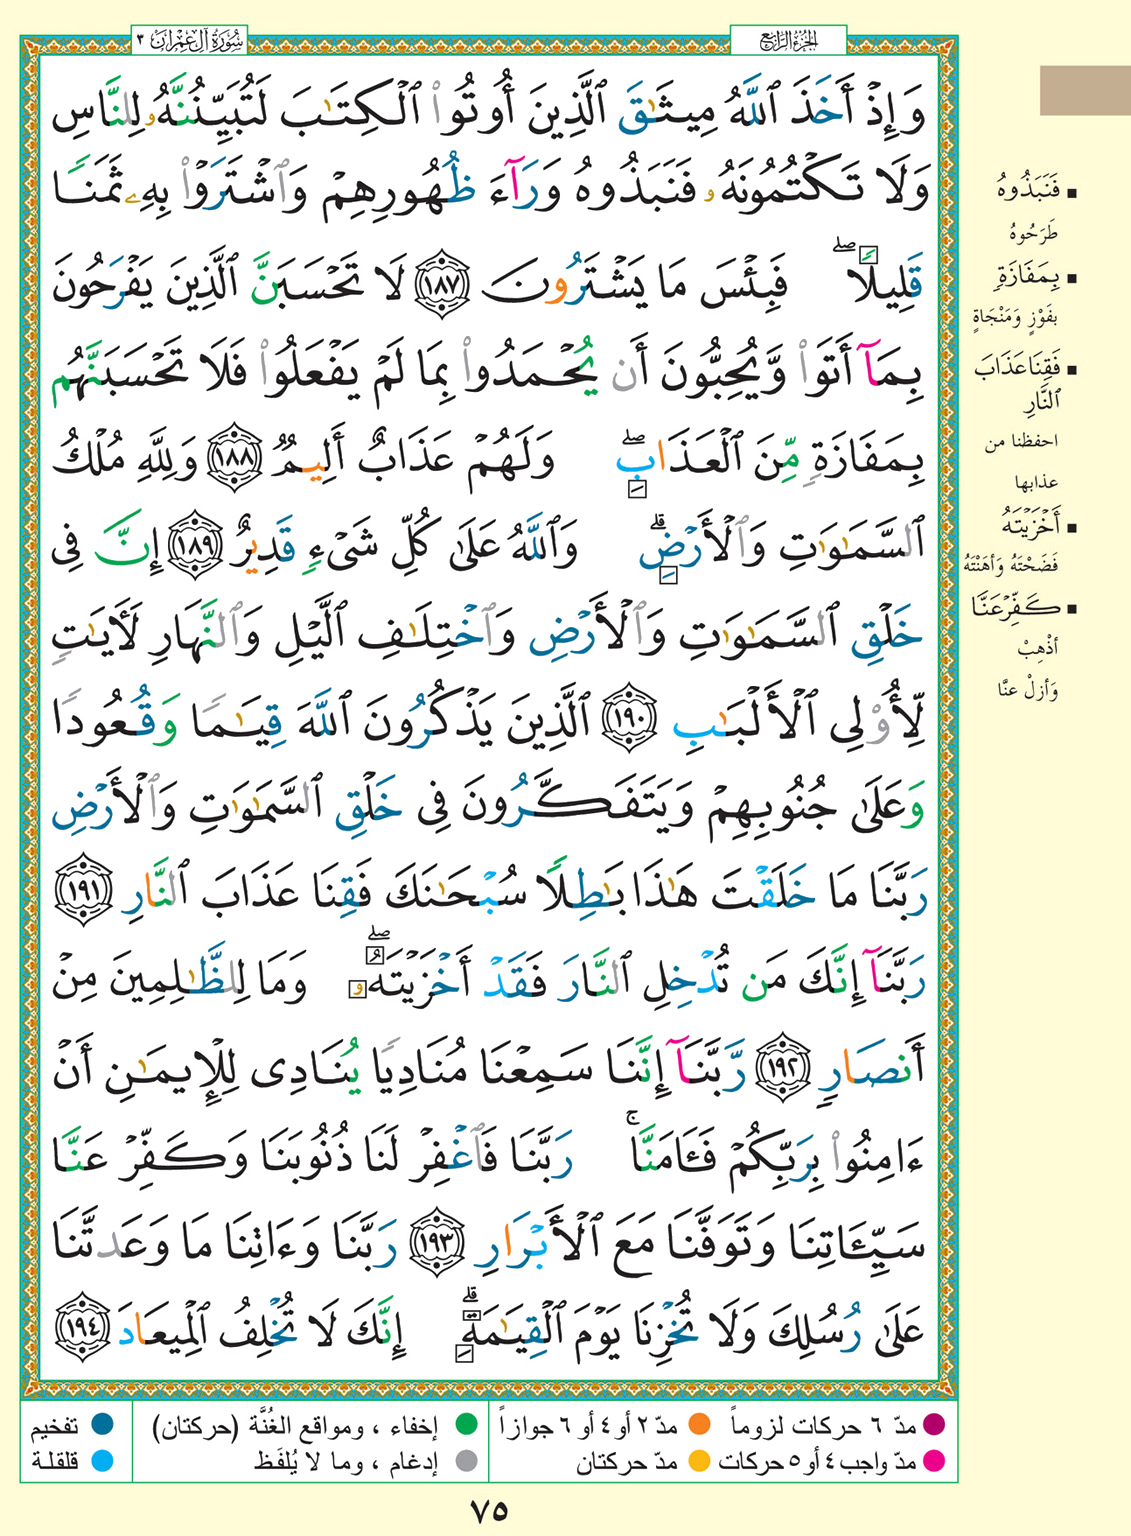 سُورَةُ آلِ عِمْرَان ٣
الجُزْءُ الرَّابِعُ
وَإِذْ أَخَذَ ٱللَّهُ مِيثَٰقَ ٱلَّذِينَ أُوتُوا۟ ٱلْكِتَٰبَ لَتُبَيِّنُنَّهُۥ لِلنَّاسِ
وَلَا تَكْتُمُونَهُۥ فَنَبَذُوهُ وَرَآءَ ظُهُورِهِمْ وَٱشْتَرَوْا۟ بِهِۦ ثَمَنًا
قَلِيلًا ۖ فَبِئْسَ مَا يَشْتَرُونَ ١٨٧ لَا تَحْسَبَنَّ ٱلَّذِينَ يَفْرَحُونَ
بِمَآ أَتَوا۟ وَّيُحِبُّونَ أَن يُحْمَدُوا۟ بِمَا لَمْ يَفْعَلُوا۟ فَلَا تَحْسَبَنَّهُم
بِمَفَازَةٍ مِّنَ ٱلْعَذَابِ ۖ وَلَهُمْ عَذَابٌ أَلِيمٌ ١٨٨ وَلِلَّهِ مُلْكُ
ٱلسَّمَٰوَٰتِ وَٱلْأَرْضِ ۗ وَٱللَّهُ عَلَىٰ كُلِّ شَىْءٍ قَدِيرٌ ١٨٩ إِنَّ فِى
خَلْقِ ٱلسَّمَٰوَٰتِ وَٱلْأَرْضِ وَٱخْتِلَٰفِ ٱلَّيْلِ وَٱلنَّهَارِ لَأَيَٰتٍ
لِّأُو۟لِى ٱلْأَلْبَٰبِ ١٩٠ ٱلَّذِينَ يَذْكُرُونَ ٱللَّهَ قِيَٰمًا وَقُعُودًا
وَعَلَىٰ جُنُوبِهِمْ وَيَتَفَكَّرُونَ فِى خَلْقِ ٱلسَّمَٰوَٰتِ وَٱلْأَرْضِ
رَبَّنَا مَا خَلَقْتَ هَٰذَا بَٰطِلًا سُبْحَٰنَكَ فَقِنَا عَذَابَ ٱلنَّارِ ١٩١
رَبَّنَآ إِنَّكَ مَن تُدْخِلِ ٱلنَّارَ فَقَدْ أَخْزَيْتَهُۥ ۖ وَمَا لِلظَّٰلِمِينَ مِنْ
أَنصَارٍ ١٩٢ رَّبَّنَآ إِنَّنَا سَمِعْنَا مُنَادِيًا يُنَادِى لِلْإِيمَٰنِ أَنْ
ءَامِنُوا۟ بِرَبِّكُمْ فَـَٔامَنَّا ۚ رَبَّنَا فَٱغْفِرْ لَنَا ذُنُوبَنَا وَكَفِّرْ عَنَّا
سَيِّـَٔاتِنَا وَتَوَفَّنَا مَعَ ٱلْأَبْرَارِ ١٩٣ رَبَّنَا وَءَاتِنَا مَا وَعَدتَّنَا
عَلَىٰ رُسُلِكَ وَلَا تُخْزِنَا يَوْمَ ٱلْقِيَٰمَةِ ۗ إِنَّكَ لَا تُخْلِفُ ٱلْمِيعَادَ ١٩٤
▪ فَنَبَذُوهُ
طَرَحُوهُ
▪ بِمَفَازَةٍ
بفَوْزٍ وَمَنْجَاةٍ
▪ فَقِنَا عَذَابَ
ٱلنَّارِ
احفظنا من
عذابها
▪ أَخْزَيْتَهُ
فَضَحْتَهُ وَأهَنْتَهُ
▪ كَفِّرْ عَنَّا
أذْهِبْ
وَأزِلْ عنَّا
مدّ ٦ حركات لزوماً
مدّ ٢ أو ٤ أو ٦ جوازاً
إخفاء ، ومواقع الغُنَّة (حركتان)
تفخيم
مدّ واجب ٤ أو ٥ حركات
مدّ حركتان
إدغام ، وما لا يُلفَظ
قلقلة
٧٥